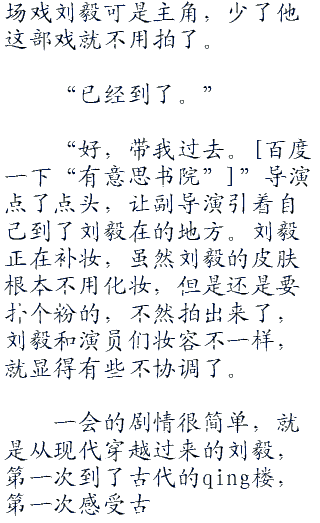 场戏刘毅可是主角，少了他
这部戏就不用拍了。
“已经到了。”
“好，带我过去。[百度
一下“有意思书院”]”导演
点了点头，让副导演引着自
己到了刘毅在的地方。刘毅
正在补妆，虽然刘毅的皮肤
根本不用化妆，但是还是要
扑个粉的，不然拍出来了，
刘毅和演员们妆容不一样，
就显得有些不协调了。
一会的剧情很简单，就
是从现代穿越过来的刘毅，
第一次到了古代的qing楼，
第一次感受古